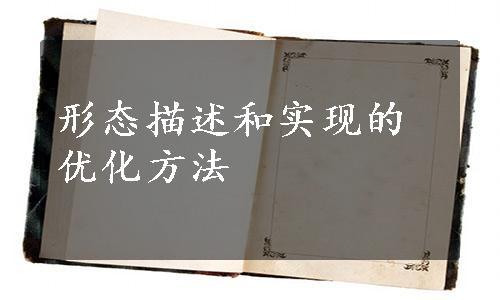 形态描述和实现的
优化方法